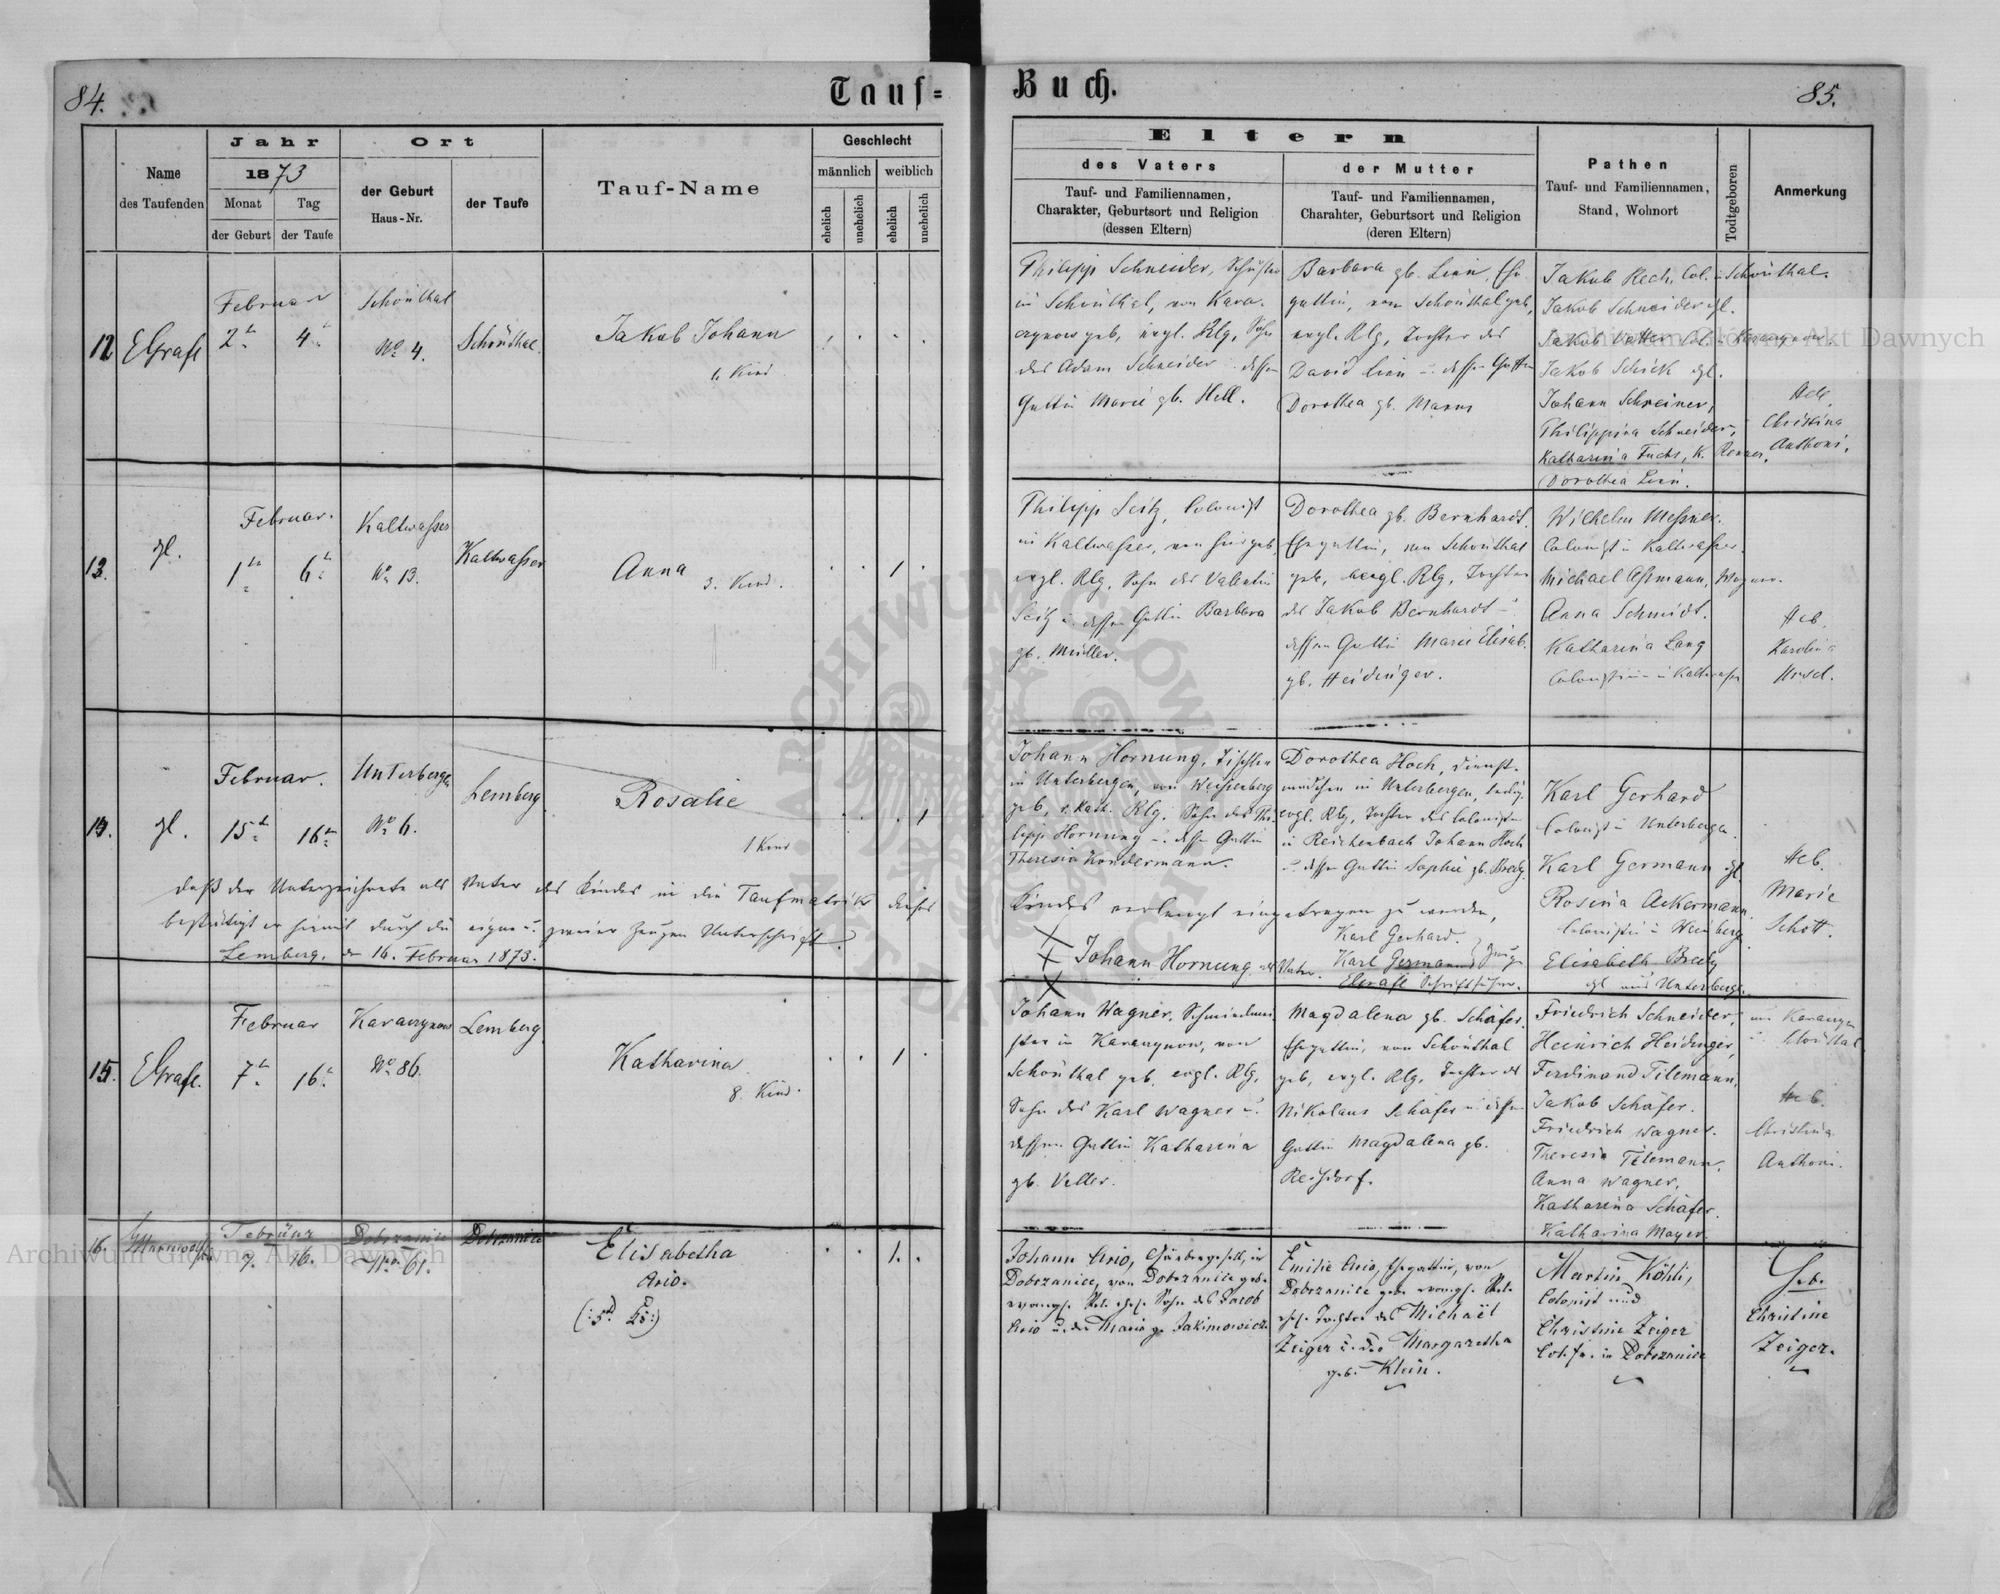 84.
Tauf=
Buch.
85.
Name
des Taufenden
Jahr
1873
Monat
der Geburt
Tag
der Taufe
Ort
der Geburt
Haus-Nr.
der Taufe
Tauf-Name
Geschlecht
männlich
weiblich
ehelich
unehelich
ehelich
unehelich
Eltern
des Vaters
Tauf- und Familiennamen,
Charakter, Geburtsort und Religion
(dessen Eltern)
der Mutter
Tauf- und Familiennamen,
Charahter, Geburtsort und Religion
(deren Eltern)
Pathen
Tauf- und Familiennamen,
Stand, Wohnort
Todtgeboren
Anmerkung
12
EGrafl
Februar
2t
4t
Schönthal
No 4.
Schönthal
Jakob Johann
1. Kind
Philipp Schneider, Schuster
in Schönthal, von Kara-
czynow geb, evgl. Rlg, Sohn
des Adam Schneider u. dessen
Gattin Marie gb. Hell.
Barbara gb. Lien, Ehe-
gattin, von Schönthal geb,
evgl. Rlg, Tochter des
David Lien u. dessen Gattin
Dorothea gb. Manns
Jakob Rech, Col. in Schönthal.
Jakob Schneider gl.
Jakob Vetter Col. in Karaczynow.
Jakob Schick gl.
Johann Schreiner,
Philippina Schneider,
Katharina Fuchs, K. Renner,
Dorothea Lien.
Heb,
Christina
Anthoni,
13.
gl.
Februar.
1te
6te
Kaltwasser
No 13.
Kaltwasser
Anna
3. Kind.
1
Philipp Seitz, Colonist
in Kaltwasser, von hier geb,
evgl. Rlg, Sohn des Valentin
Seitz u. dessen Gattin Barbara
gb. Müller.
Dorothea gb. Bernhardt.
Ehegattin, von Schönthal
geb, evgl. Rlg, Tochter
des Jakob Bernhardt u.
dessen Gattin Marie Elisab.
gb. Heidinger.
Wilhelm Messner.
Colonist in Kaltwasser.
Michael Assmann, Wagner.
Anna Schmidt.
Katharina Lang
in Kaltwasser
Heb.
Karolina
14.
gl.
Februar.
15t
16te
Unterbergen
No 6.
Lemberg
Rosalie
1 Kind
1
Johann Hornung, Tischler
in Unterbergen, von Weissenberg
geb, r. kath. Rlg. Sohn des Phi-
lipp Hornung u. dessen Gattin
Theresia Kondermann.
Dorothea Hoch, Dienst-
mädchen in Unterbergen, ledig,
evgl. Rlg, Tochter des Colonisten
in Reichenbach Johann Hoch
u. dessen Gattin Sophie gb. Bredy.
Karl Gerhard
Colonist in Unterbergen.
Karl Germann gl.
Rosina Ackermann.
in Weinberge
Elisabeth Bredy
gl aus Unterbergen.
Heb.
Marie
Schott.
daß der Unterzeichnete als Vater des Kindes in die Taufmatrik dieses
Kindes verlangt eingetragen zu werden,
bestätigt er hiermit durch die eigene u. zweier Zeugen Unterschrift.
Lemberg, den 16. Februar 1873.
Johann Hornung als Vater.
Karl Gerhard.
Karl Germann
Zeugen
EGrafl Schriftführer.
15.
EGrafl.
Februar
7t
16t
Karaczynow
No 86.
Lemberg
Katharina
8. Kind.
1
Johann Wagner, Schmiedmei-
ster in Karaczynow, von
Schönthal geb, evgl. Rlg,
Sohn des Karl Wagner u.
dessen Gattin Katharina
gb. Veller.
Magdalena gb. Schäfer.
Ehegattin, von Schönthal
geb, evgl. Rlg, Tochter des
Nikolaus Schäfer u. dessen
Gattin Magdalena gb.
Reisdorf.
Friedrich Schneider,
Heinrich Heidinger,
Ferdinand Tilemann,
Jakob Schäfer.
Friedrich Wagner.
Theresia Tilemann,
Anna Wagner,
Katharina Schäfer.
Katharina Mayer.
aus Karaczyn
u. Schönthal
Heb.
Christina
Anthoni.
16.
Februar
7.
16.
Dobrzanica
No. 61.
Dobrzanica
Elisabetha
Ario.
1.
Johann Ario, in
Dobrzanica, von Dobrzanica geb.
evangl. Rel. ehel. Sohn des Jacob
Ario u. der Maria g. Jakimowicz.
Emilie Ario, Ehegattin, von
Dobrzanica geb. evangl. Rel.
ehel. Tochter des Michaël
Zeiger u. der Margaretha
geb. Klein.
Martin Köhli,
Colonist und
Christine Zeiger
in Dobrzanica
Heb.
Christine
Zeiger.
Archiwum Główne Akt Dawnych
Archiwum Główne Akt Dawnych
ARCHIWUM GŁÓWNE AKT DAWNYCH